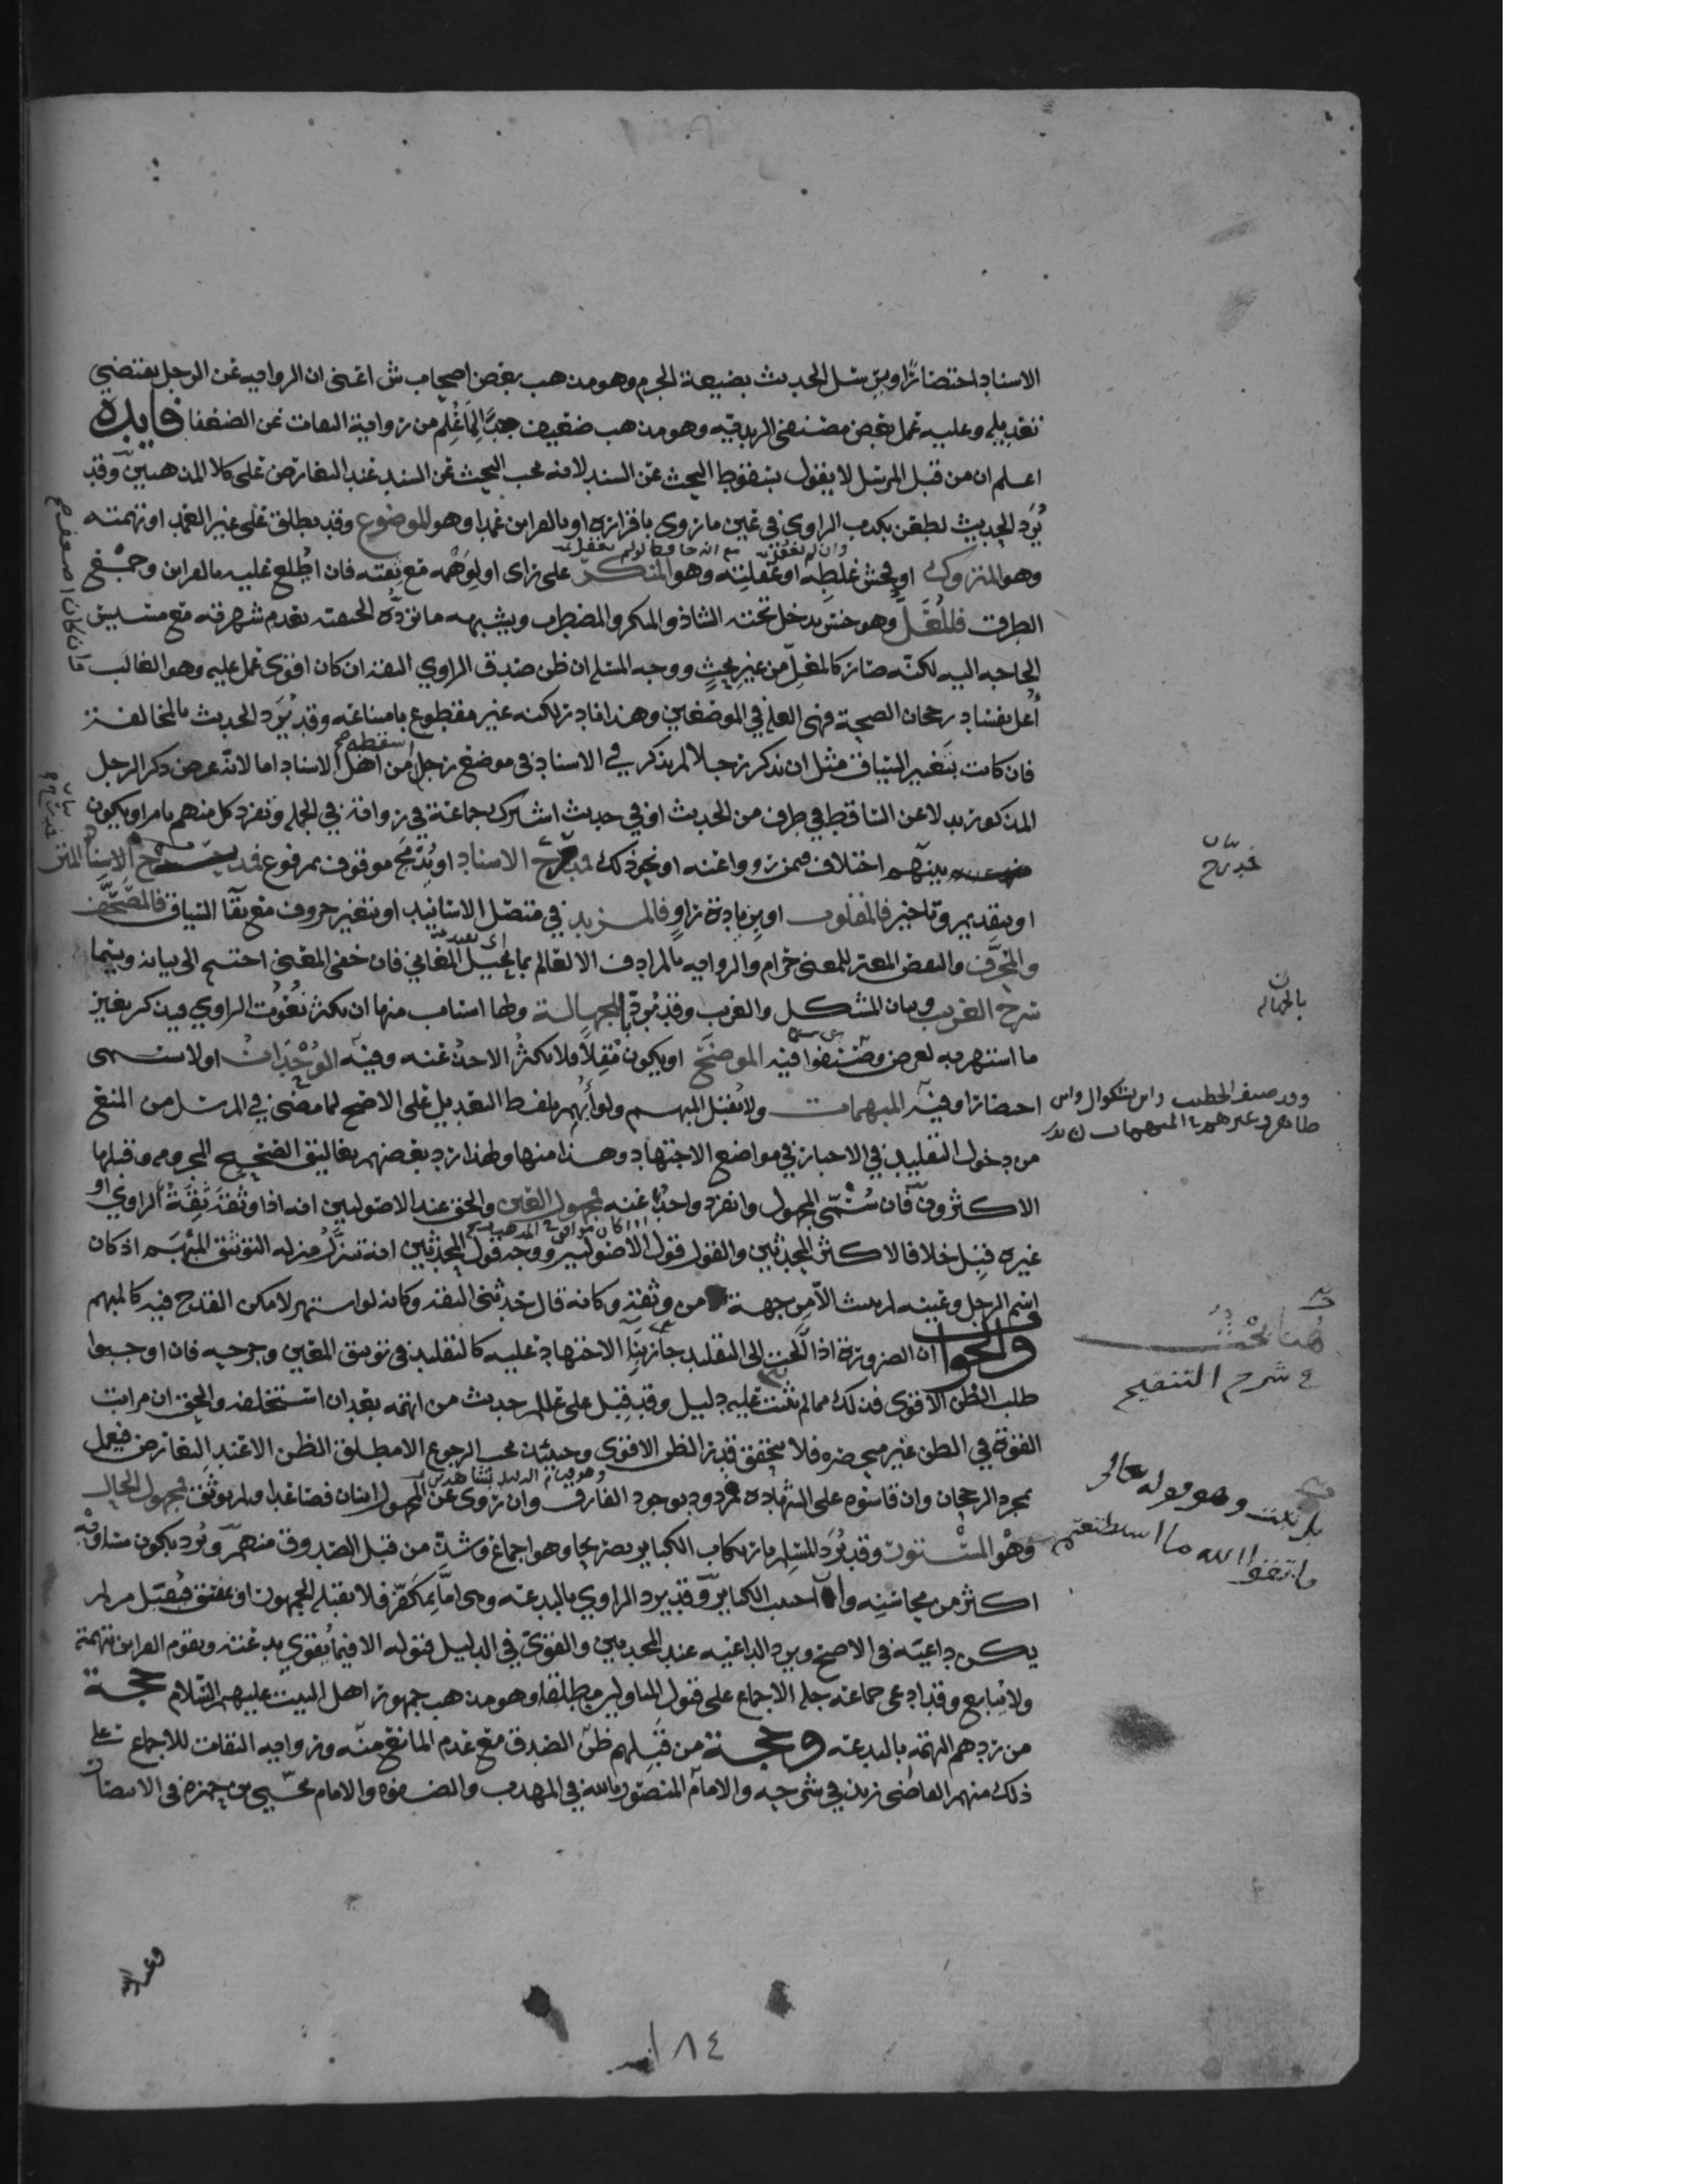 الاسناد اختصارًا ويرسل الحديث بصيغة الجزم وهو مذهب بعض اصحاب ش اعني ان الرواية عن الرجل يقتضي
تعديله وعليه عمل بعض مصنفي الزيدية وهو مذهب ضعيف جدًّا لما عُلِم من رواية الثقات عن الضعفا فايدة
اعلم ان من قبل المرسل لا يقول بسقوط البحث عن السند لانه يجب البحث عن السند عند التعارض على كلا المذهبين وقد
يُرَد الحديث لطعن بكذب الراوي في عين ما روى باقراره او بالقراين عمدا وهو الموضوع وقد يطلق على غير العمد او تهمته
وهو المتروك او فحش غلطه او غفلته وهو المنكر على راى او لوهْمه مع ثقته فان اطُّلع عليه بالقراين وجمع
الطرق فالمُعَلّ وهو جنس يدخل تحته الشاذ والمنكر والمضطرب ويشبهه ما تردُّه الحنفية بعدم شهرته مع مسيس
الحاجة اليه لكنه صار كالمعلّ من غير بحثٍ ووجه المسئلة ان ظن صدق الراوي الثقة ان كان اقوى عمل عليه وهو الغالب
أُعل بفساد رجحان الصحة فهي العلة في الموضعين وهذا نادر لكنه غير مقطوع بامتناعه وقد يُرَد الحديث بالمخالفة
فان كانت بتغيير السياق مثل ان يذكر رجلا لم يذكر في الاسناد في موضع رجل من اهل الاسناد اما لانه عرض ذكر الرجل
المذكور بدلا عن الساقط في طرف من الحديث او في حديث اشترك جماعة في روايته في الجملة وتفرد كل منهم بامر او يكون
بينهم اختلاف فيمن رووا عنه او نحو ذلك فمدرج الاسناد او بدمج موقوف بمرفوع فمدرج المتن
او بتقديم وتاخير فالمقلوب او بزيادة راوٍ فالمزيد في متصل الاسانيد او بتغيير حروف مع بقآ السياق فالمصحَّف
والمحرَّف والنقص المغير للمعنى حرام والرواية بالمرادف الا لعالم بما يحيل المعاني فان خفي المعنى احتيج الى بيانه ويسما
شرح الغريب وبيان المشكل والغريب وقد يُردّ بالجهالة ولها اسباب منها ان تكثر نُعُوت الراوي فيذكر بغير
ما اشتهر به لغرض وصنفوا فيه الموضح او يكون مُقِلاًّ فلا يكثرُ الاخذ عنه وفيه الوُحْدَان او لا يسمى
احتصارا وفيه المبهمات ولا يُقبل المبهم ولو أُبهم بلفظ التعديل على الاصح لما مضى في المرسل من المنع
من دخول التقليد في الاخبار في مواضع الاجتهاد وهذا منها ولهذا رد بعضهم تعاليق الصحيح المجزومه وقبلها
الاكثرون فان سُمّي المجهول وانفرد واحد عنه فمجهول العين والحق عند الاصوليين انه اذا وثقه ثقةٌ الراوي او
غيره قُبِل خلافا لاكثر المحدثين والقول قول الاصوليين ووجه قول المحدثين انه تنزَّل منزله التوثيق المبهَم اذ كان
اسم الرجل وعينه لم يثبت الّا من جهة من وثقه وكانه قال حدثني الثقة وكانه لو اشتهر لامكن القدح فيه كالمبهم
والجواب ان الضرورة اذا الجت الى التقليد جاز الاجتهاد عليه كالتقليد في توثيق المعين وجرحه فان اوجبوا
طلب الظن الاقوى فذلك مما لم يثبت عليه دليل وقد قبل علي عليلم حديث من اتهمه بعد ان استحلفه والحق ان مراتب
القوة في الظن غير منحصره فلا يتحقق قدر الظن الاقوى وحينئذ يجب الرجوع الا مطلق الظن الا عند التعارض فيعمل
بمجرد الرجحان وان قاسوه على الشهاده فمردود بوجود الفارق وان روى عن المجهول اثنان فصاعدا ولم يوثق فمجهول الحال
وهو المستور وقد يُرَد المسلم بارتكاب الكباير تصريحا وهو اجماع وشذ من قبل الصدوق منهم ويُرد بكون مساوئه
اكثر من محاسنه واحب الكباير وقد يرد الراوي بالبدعة وهى امَّا بمكفّر فلا يقبله الجمهور او بمفسق فيقبل من لم
يكن داعية في الاصح ويرد الداعيه عند المحدثين والقوى في الدليل قبوله الا فيما يُقوّي بدعته وتقوم القراين بتهمته
ولا يتابع وقد ادعى جماعة جلة الاجماع على قبول المتاولين مطلقا وهو مذهب جمهور اهل البيت عليهم السلام حجة
من ردهم التهمة بالبدعه وحجة من قَبِلهم ظنّ الصدق مع عدم المانع منه ورواية الثقات للاجماع على
ذلك منهم القاضي زيد في شرحه والامام المنصور بالله في المهذب والصفوه والامام يحيى بن حمزه في الانتصار
وقد صنف الخطيب وابن بشكوال وابن
طاهر وغيرهم في المبهمات
بالجهالة
هُنا بَحْث
في شرح التنقيح
بل ثبت وهو قوله تعالى
فاتقوا الله ما استطعتم
١٨٤